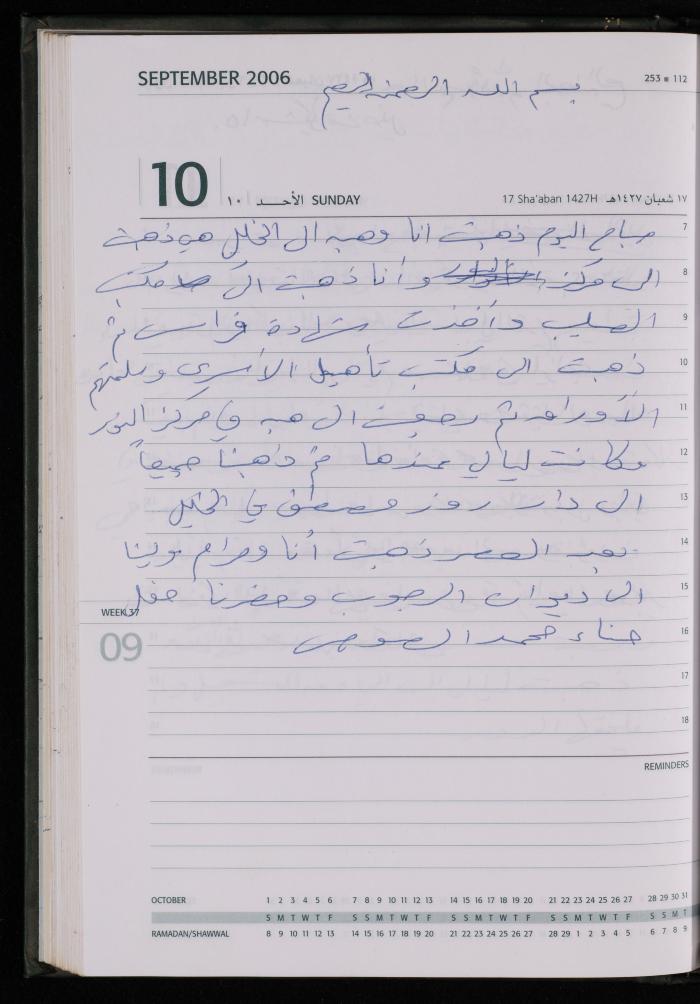 SEPTEMBER 2006
بسم الله الرحمن الرحيم
253 ■ 112
10
١٠ الأحـــد SUNDAY
17 Sha'aban 1427H ١٧ شعبان ١٤٢٧هـ
7 صباح اليوم ذهبت انا وهبه ال الخليل هي ذهبت
8 الى مركز وأنا ذهبت الى مكتب
9 الصليب وأخذت شهادة فراس ثم
10 ذهبت الى مكتب تأهيل الأسرى وسلمتهم
11 الأوراق ثم رجعت ال هبه في مركز النور
12 وكانت ليالي عندها ثم ذهبنا جميعاً
13 ال دار روز مصطفى في الخليل
14 بعد العصر ذهبت أنا ومرام ولينا
15 ال ديوان الرجوب وحضرنا حفل
WEEK 37
16 حناء محمد
09
17
18
REMINDERS
OCTOBER 1 2 3 4 5 6 7 8 9 10 11 12 13 14 15 16 17 18 19 20 21 22 23 24 25 26 27 28 29 30 31
S M T W T F S S M T W T F S S M T W T F S S M T W T F S S M T
RAMADAN/SHAWWAL 8 9 10 11 12 13 14 15 16 17 18 19 20 21 22 23 24 25 26 27 28 29 1 2 3 4 5 6 7 8 9